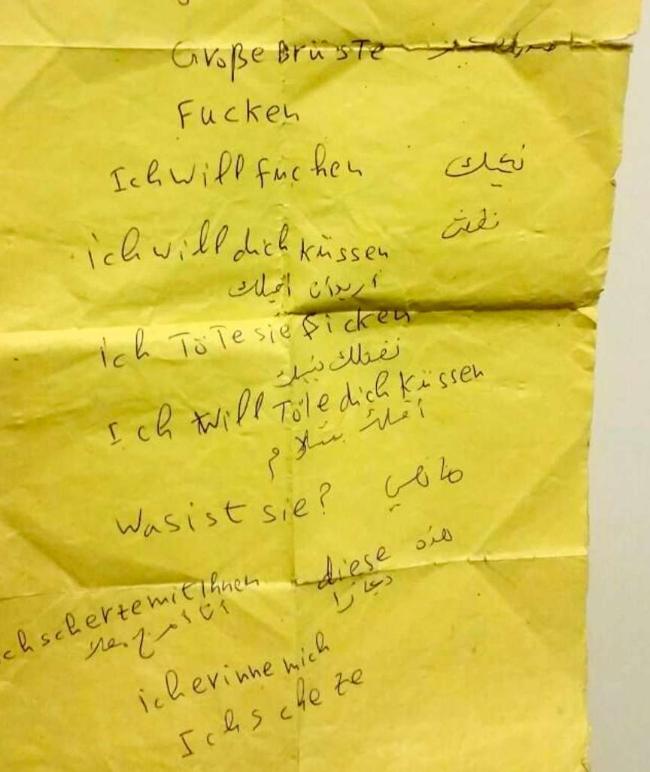 Große Brüste
Fucken
Ich will fucken نحيك
نفث
ich will dich küssen
اريدان اقبلك
ich Töte sie ficken
نقتلك نيك
Ich will Töte dich Küssen
أقتلك بسلام
Was ist sie? ماهي
chscherze mit Ihnen diese هذه
ich erinne mich
Ich scheze